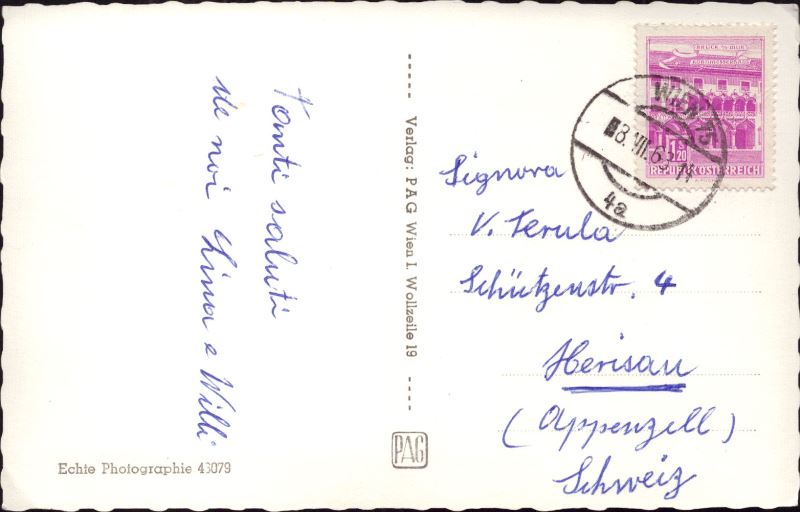 Vomti saluti
ste noi Lina e Willi
Echte Photographie 43079
Verlag: PAG Wien I. Wollzeile 19
PAG
BRUCK A/D MUR
KORNMESSERHAUS
S 1.20
REPUBLIK ÖSTERREICH
WIEN 75
8.VII.63
4a
Signora
V. Ferula
Schützenstr. 4
Herisau
(Appenzell)
Schweiz